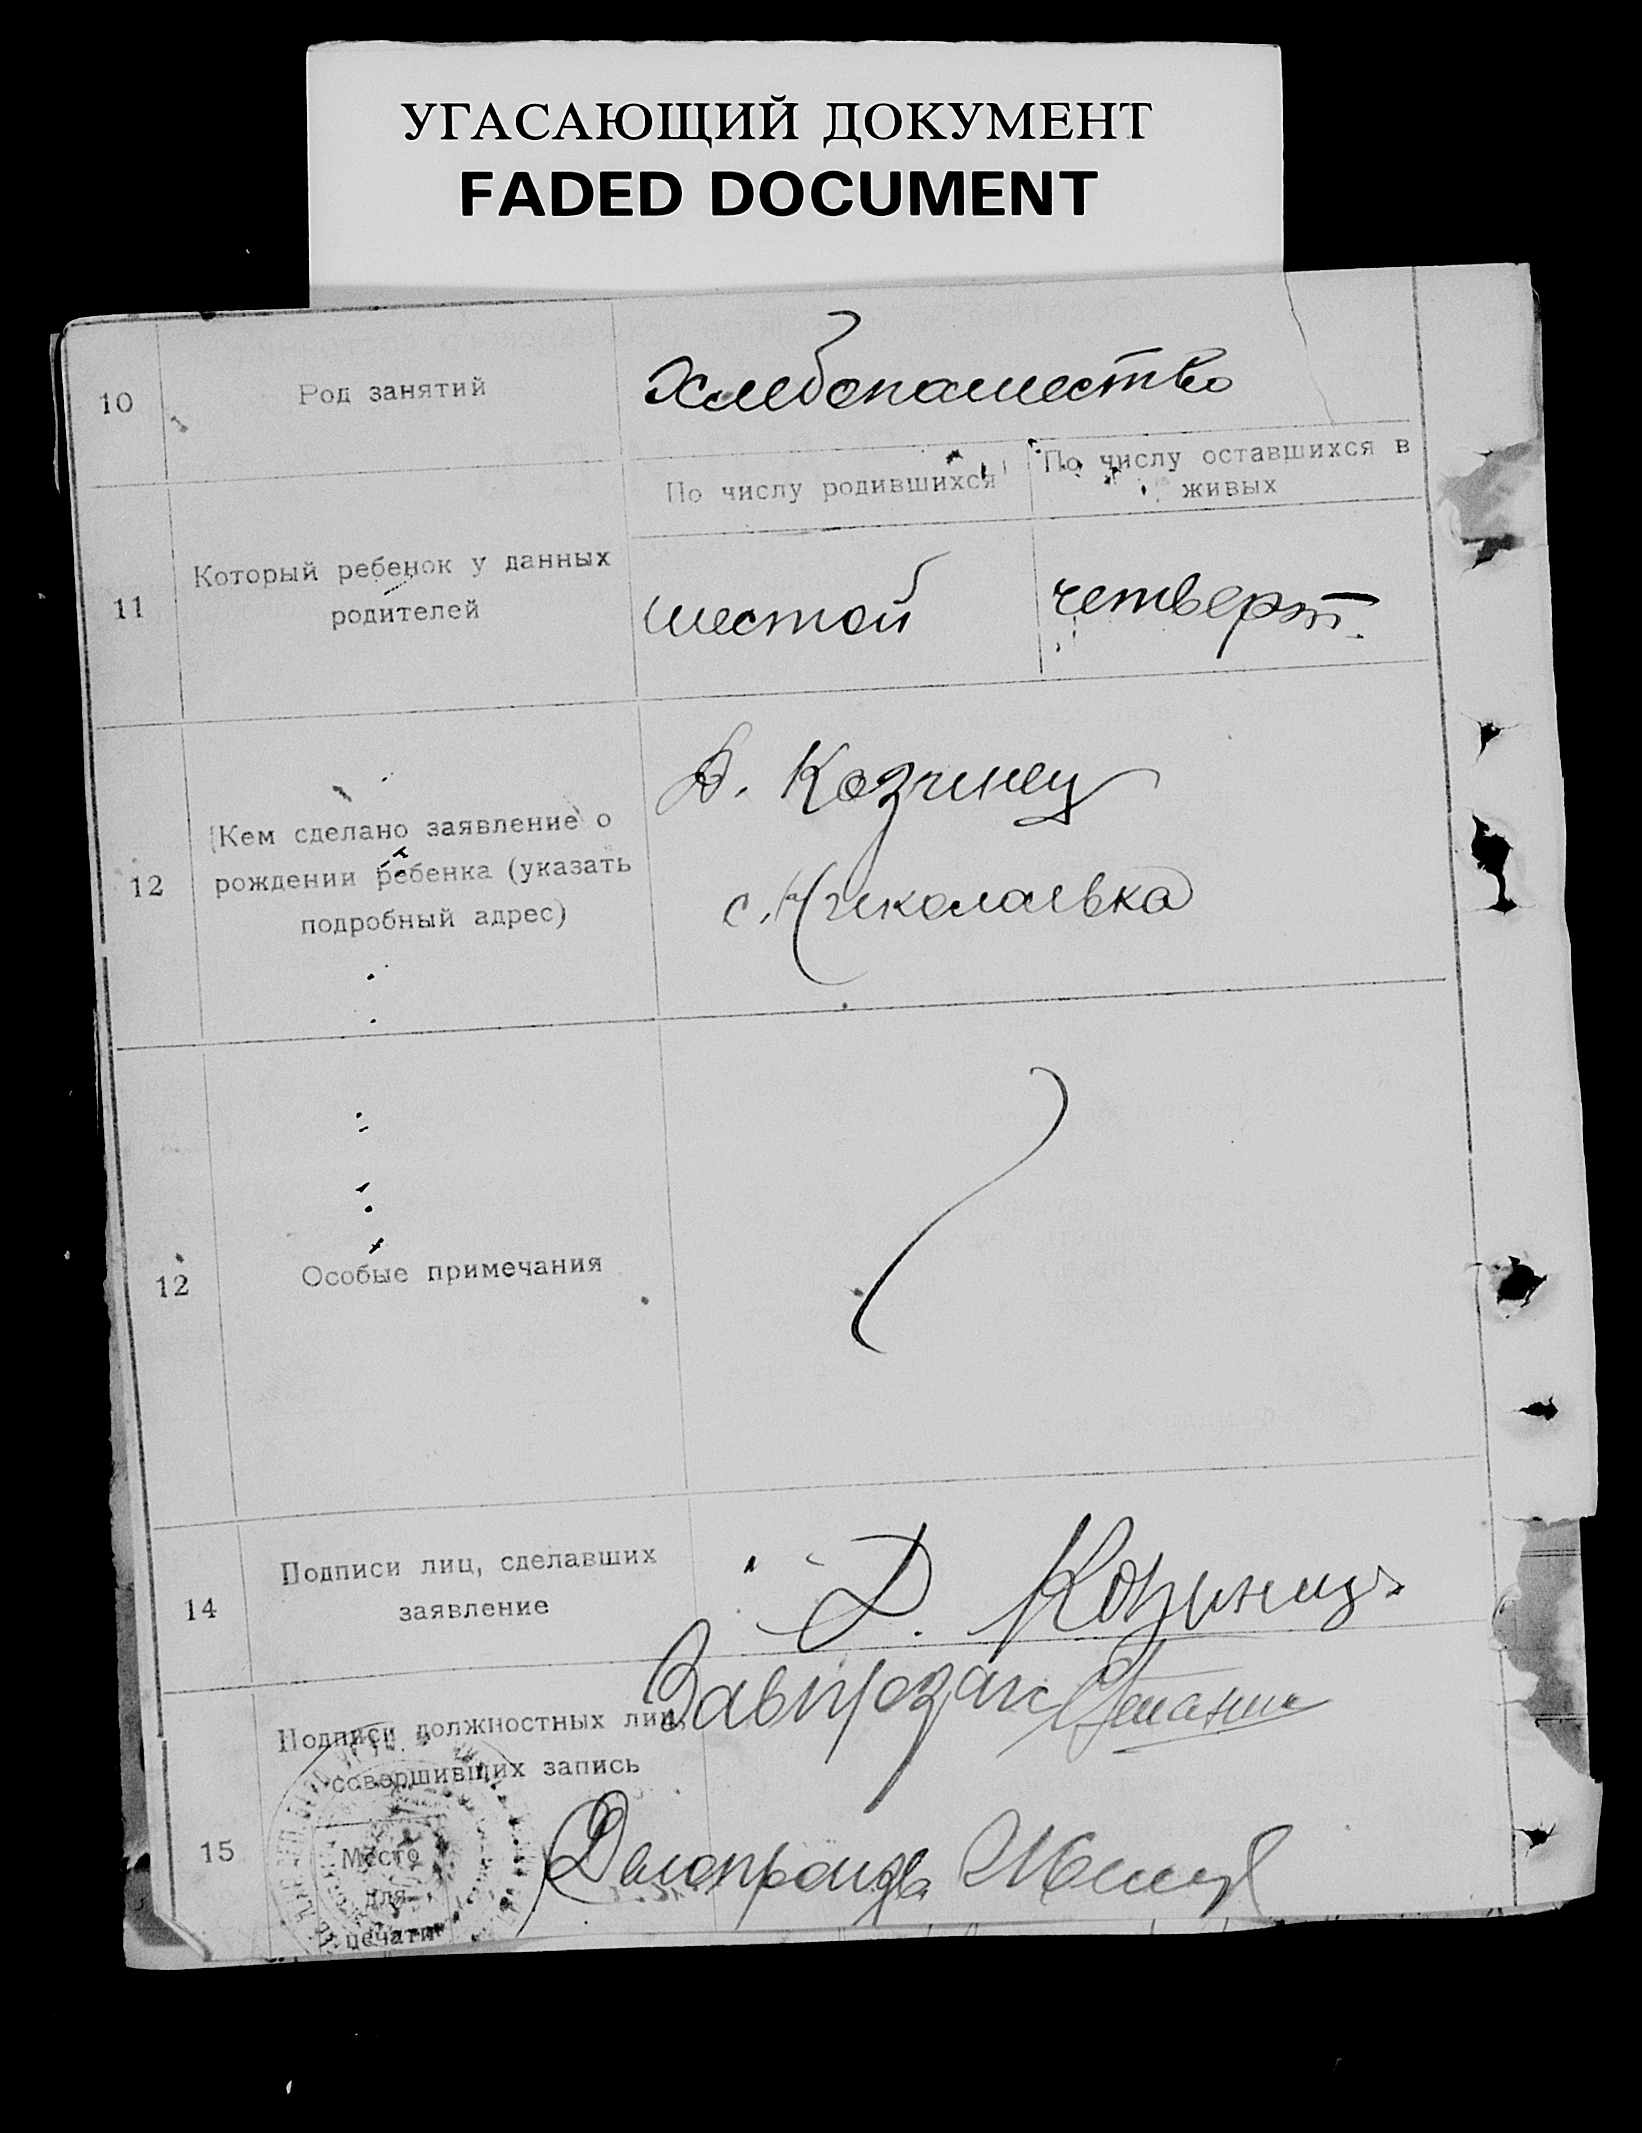 УГАСАЮЩИЙ ДОКУМЕНТ
FADED DOCUMENT
10
Род занятий
хлебопашество
11
Который ребенок у данных
родителей
По числу родившихся
По числу оставшихся в
живых
шестой
четверт.
12
Кем сделано заявление о
рождении ребенка (указать
подробный адрес)
Козчинец
с. Николаевка
12
Особые примечания
14
Подписи лиц, сделавших
заявление
Д.
15
Подписи должностных лиц,
совершивших запись
Место
для
печати
Завпрозагс
Делопроизв.